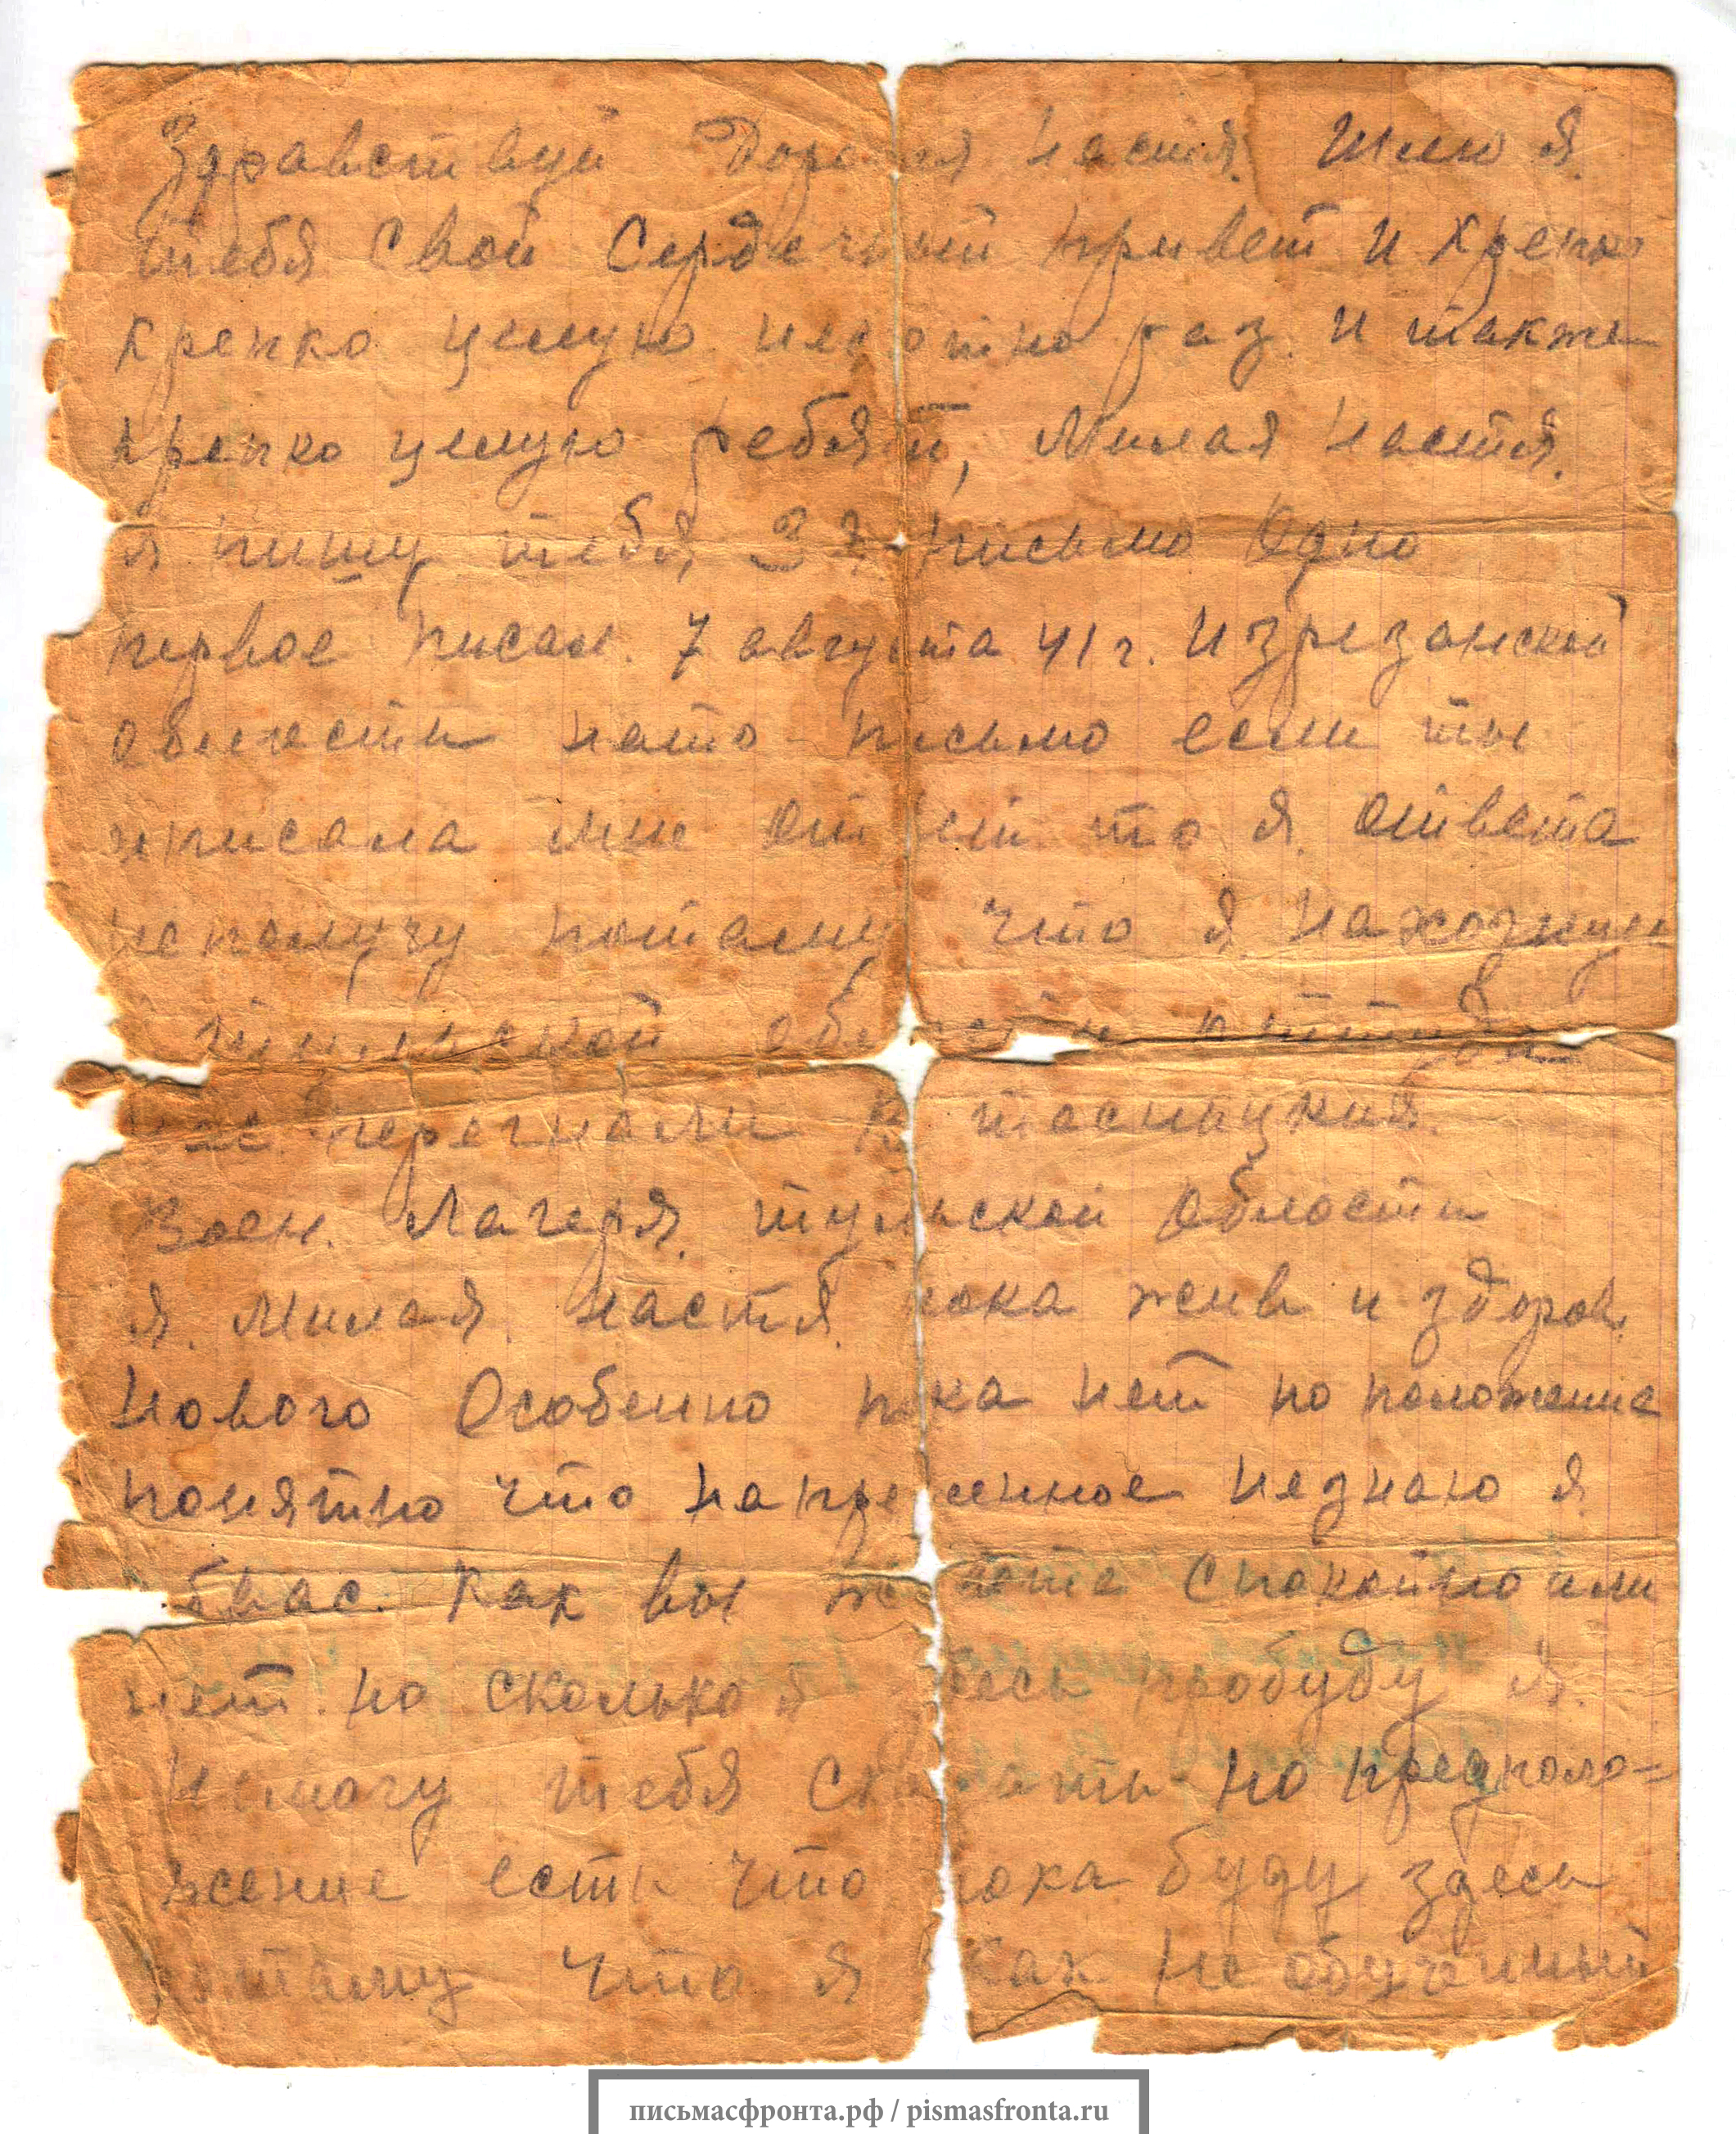 Здравствуй Дорогая Настя. Шлю я
тебя Свой Сердечный привет и крепко
крепко целую несчотно раз. и также
крепко целую ребят, Милая Настя.
я пишу тебя, 3 письмо Одно
первое писал. 7 августа 41 г. Из резанской
области нато письмо если ты
и писала мне ответ то я. ответа
неполучу потаму что я. нахожнус
области оттуда
нас. перегнали В тесницкия.
Воен. Лагеря. тульской области
я. Милая. Настя. пока жив и здоров.
Нового Особенно пока нет но положение
понятно что напреженное незнаю я
обвас. Как вы живете Спокойно или
нет. но сколько я здесь пробуду я.
немогу тебя сказать но предполо=
жение есть что пока буду здесь
потаму что я как не обученный
письмасфронта.рф / pismasfronta.ru